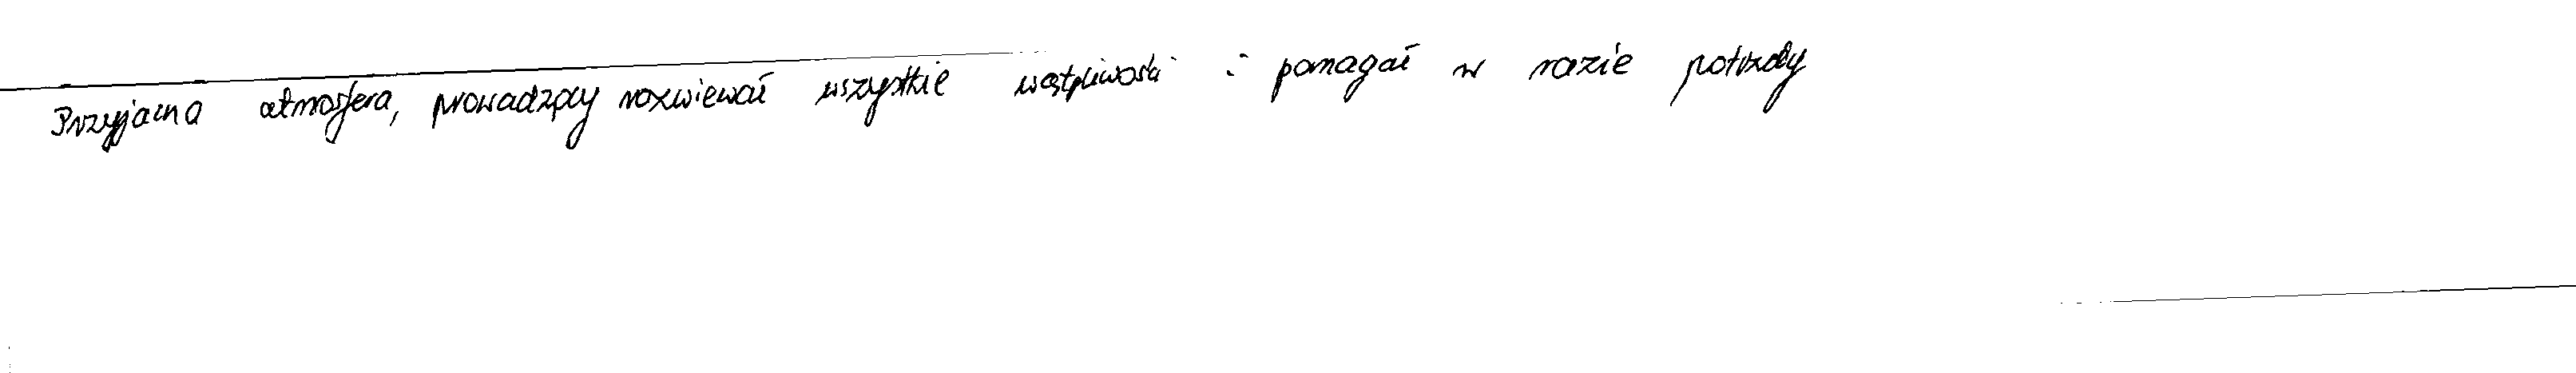 Przyjazna atmosfera, prowadzący rozwiewał wszystkie wątpliwości i pomagał w razie potrzeby